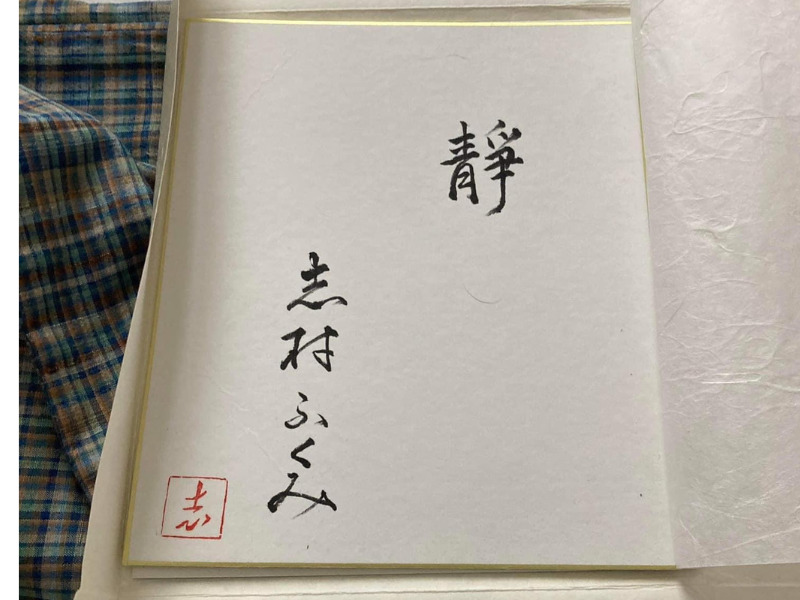 靜
志村ふくみ
志